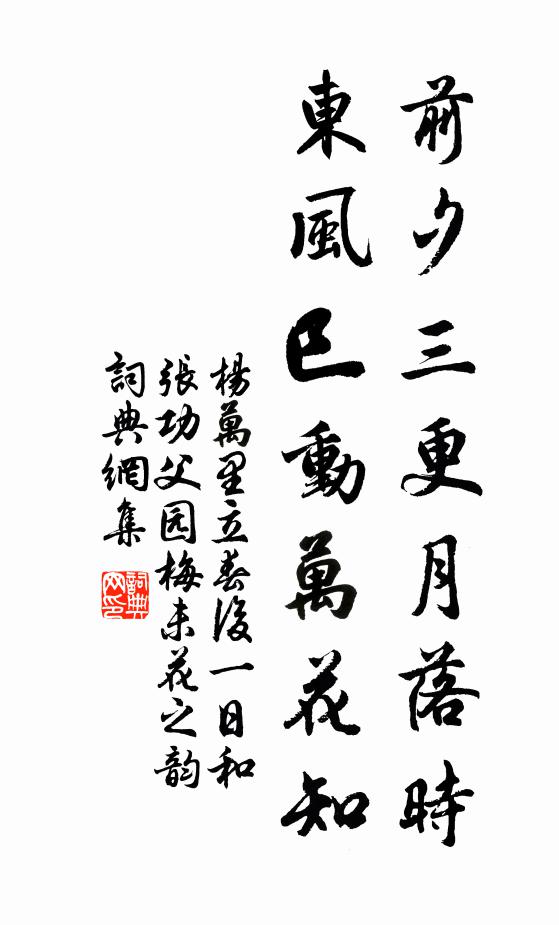 前夕三更月落時
東風已動萬花知
楊萬里立春後一日和
張功父园梅未花之韵
詞典網集
詞典网印